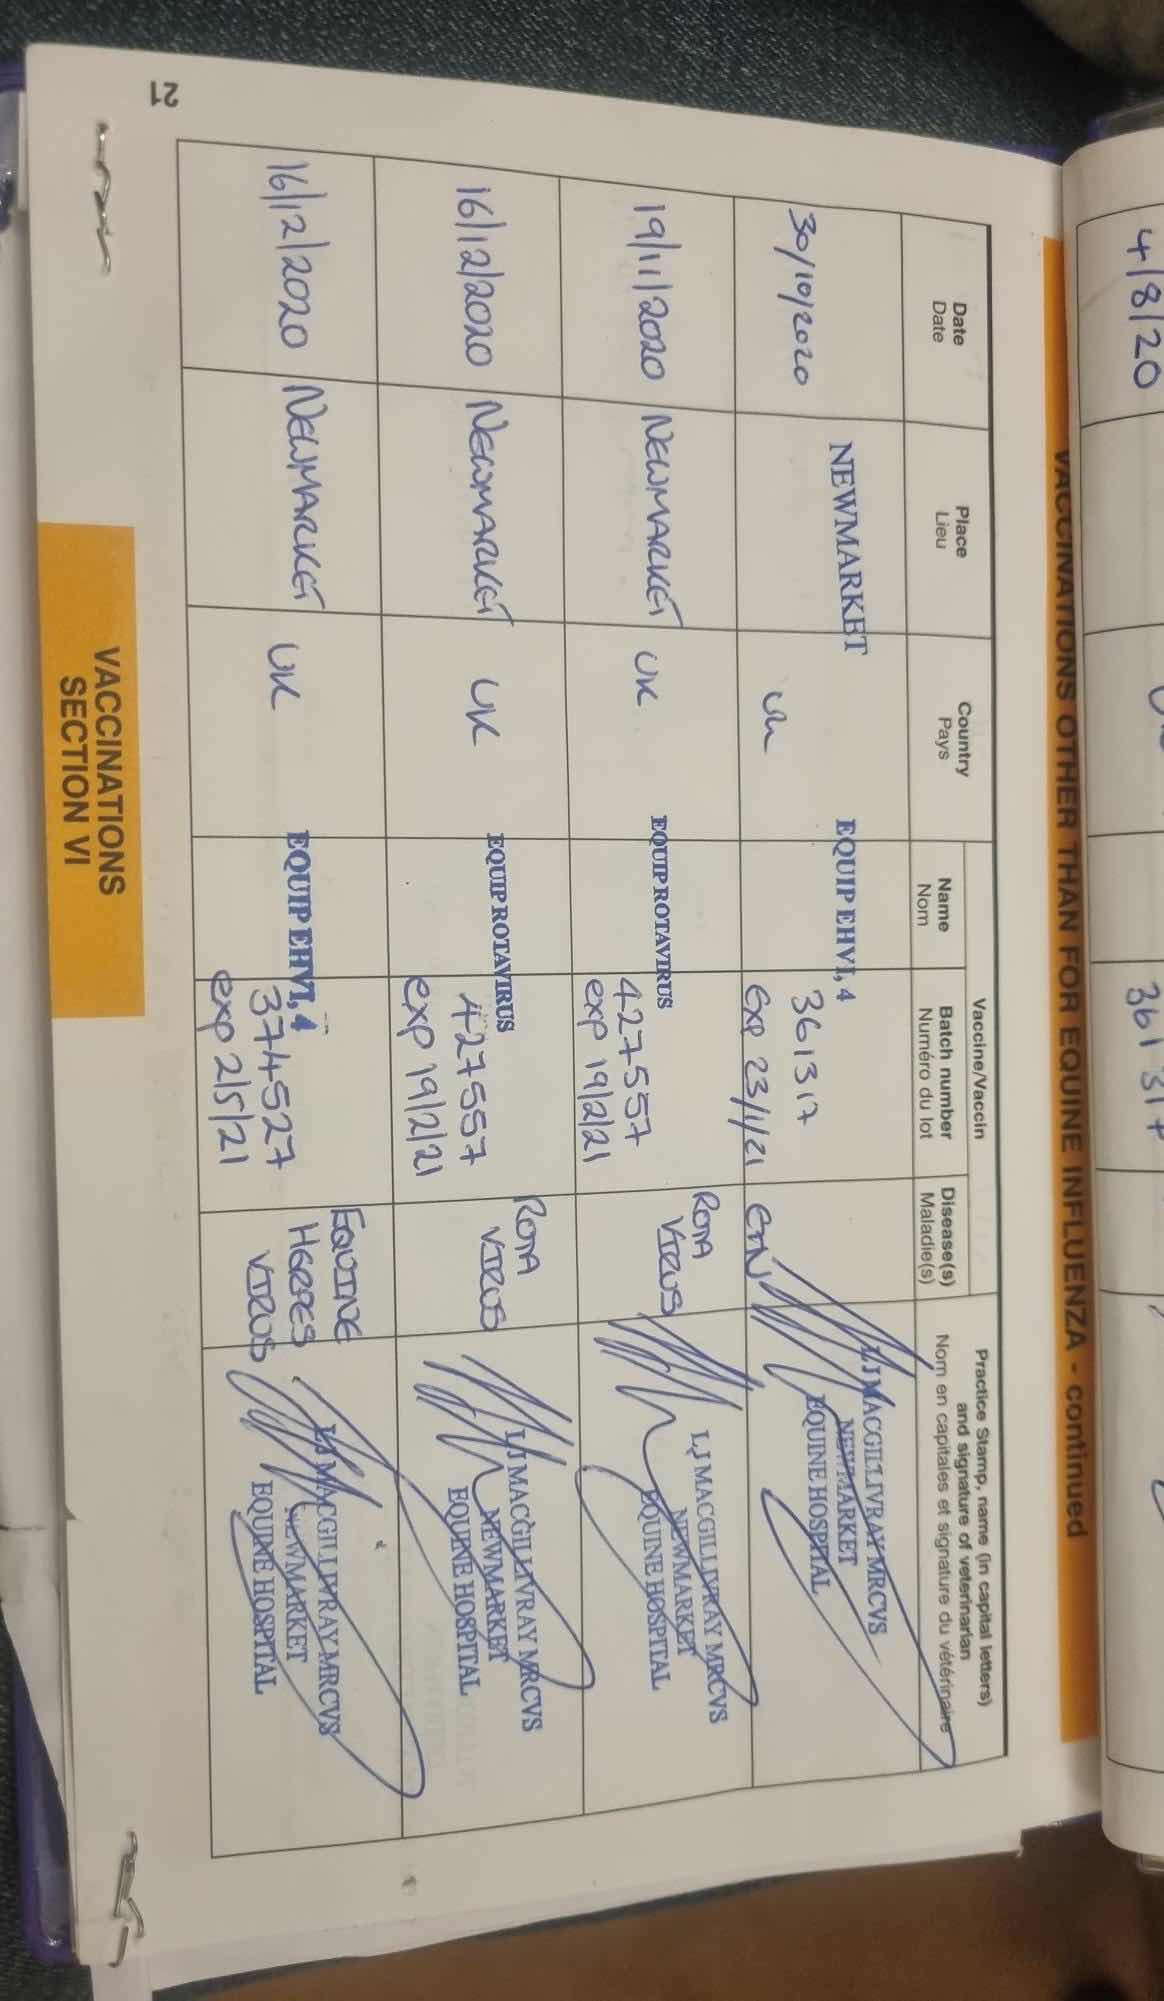 4/8/20
361317
VACCINATIONS OTHER THAN FOR EQUINE INFLUENZA - continued
Date
Date
Place
Lieu
Country
Pays
Vaccine/Vaccin
Name
Nom
Batch number
Numéro du lot
Disease(s)
Maladie(s)
Practice Stamp, name (in capital letters)
and signature of veterinarian
Nom en capitales et signature du vétérinaire
30/10/2020
NEWMARKET
UK
EQUIP EHV1, 4
361317
exp 23/1/21
LJ MACGILLIVRAY MRCVS
NEWMARKET
EQUINE HOSPITAL
19/11/2020
NEWMARKET
UK
EQUIP ROTAVIRUS
427557
exp 19/2/21
ROTA
VIRUS
LJ MACGILLIVRAY MRCVS
NEWMARKET
EQUINE HOSPITAL
16/12/2020
NEWMARKET
UK
EQUIP ROTAVIRUS
427557
exp 19/2/21
ROTA
VIRUS
LJ MACGILLIVRAY MRCVS
NEWMARKET
EQUINE HOSPITAL
16/12/2020
NEWMARKET
UK
EQUIP EHV1, 4
374527
exp 2/5/21
EQUINE
HERPES
VIRUS
LJ MACGILLIVRAY MRCVS
NEWMARKET
EQUINE HOSPITAL
VACCINATIONS
SECTION VI
21